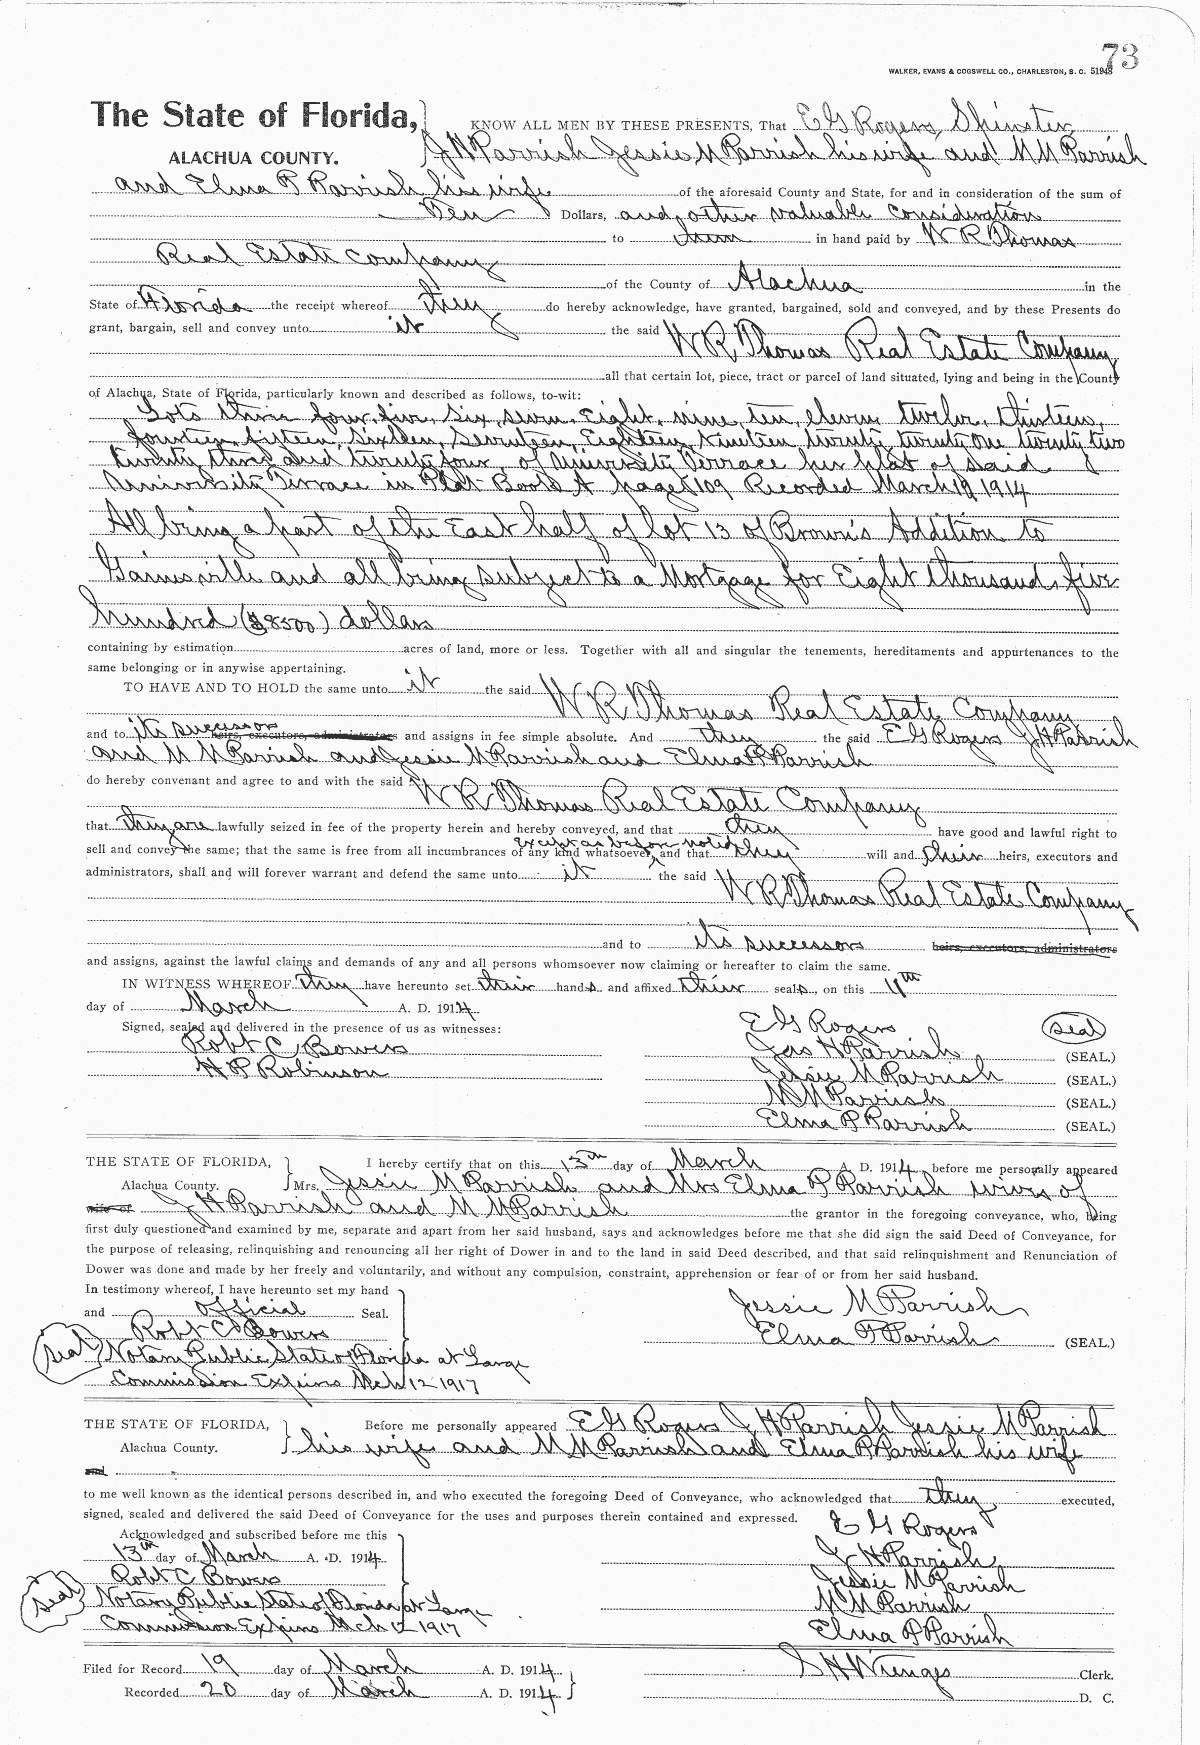 73
WALKER, EVANS & COGSWELL CO., CHARLESTON, S. C. 51948
The State of Florida, KNOW ALL MEN BY THESE PRESENTS, That E G Rogers, Spinster,
ALACHUA COUNTY. J H Parrish Jessie M Parrish his wife and M M Parrish
and Elma P Parrish his wife of the aforesaid County and State, for and in consideration of the sum of
Ten Dollars, and other valuable consideration
to them in hand paid by W R Thomas
Real Estate Company
of the County of Alachua in the
State of Florida the receipt whereof they do hereby acknowledge, have granted, bargained, sold and conveyed, and by these Presents do
grant, bargain, sell and convey unto it the said W R Thomas Real Estate Company
all that certain lot, piece, tract or parcel of land situated, lying and being in the County
of Alachua, State of Florida, particularly known and described as follows, to-wit:
Lots three four, five, six, seven, Eight, nine, ten, eleven, twelve, thirteen,
fourteen, fifteen, sixteen, seventeen, Eighteen, Nineteen twenty twenty one twenty two
twenty three and twenty four, of University Terrace per plat of said
University Terrace in Plat Book A page 109 Recorded March 19 1914
All being a part of the East half of lot 13 of Brown's Addition to
Gainesville and all being subject to a Mortgage for Eight thousand, five
hundred ($8500) dollars
containing by estimation acres of land, more or less. Together with all and singular the tenements, hereditaments and appurtenances to the
same belonging or in anywise appertaining.
TO HAVE AND TO HOLD the same unto it the said W R Thomas Real Estate Company
and to its successors heirs, executors, administrators and assigns in fee simple absolute. And they the said E G Rogers J H Parrish
and M M Parrish and Jessie M Parrish and Elma P Parrish
do hereby convenant and agree to and with the said W R Thomas Real Estate Company
that they are lawfully seized in fee of the property herein and hereby conveyed, and that they have good and lawful right to
except as before noted
sell and convey the same; that the same is free from all incumbrances of any kind whatsoever, and that they will and their heirs, executors and
administrators, shall and will forever warrant and defend the same unto it the said W R Thomas Real Estate Company
and to its successors heirs, executors, administrators
and assigns, against the lawful claims and demands of any and all persons whomsoever now claiming or hereafter to claim the same.
IN WITNESS WHEREOF they have hereunto set their hands and affixed their seals, on this 11th
day of March A. D. 1914
Signed, sealed and delivered in the presence of us as witnesses: E G Rogers (seal)
Robt C Bowers Jas H Parrish (SEAL.)
H P Robinson Jessie M Parrish (SEAL.)
M M Parrish (SEAL.)
Elma P Parrish (SEAL.)
THE STATE OF FLORIDA, I hereby certify that on this 13th day of March A. D. 1914, before me personally appeared
Alachua County. Mrs. Jessie M Parrish and Mrs Elma P Parrish wives of
wife of J H Parrish and M M Parrish the grantor in the foregoing conveyance, who, being
first duly questioned and examined by me, separate and apart from her said husband, says and acknowledges before me that she did sign the said Deed of Conveyance, for
the purpose of releasing, relinquishing and renouncing all her right of Dower in and to the land in said Deed described, and that said relinquishment and Renunciation of
Dower was done and made by her freely and voluntarily, and without any compulsion, constraint, apprehension or fear of or from her said husband.
In testimony whereof, I have hereunto set my hand
and official Seal. Jessie M Parrish
Robt C Bowers Elma P Parrish (SEAL.)
seal Notary Public State of Florida at Large
Commission Expires Mch 12 1917
THE STATE OF FLORIDA, Before me personally appeared E G Rogers J H Parrish Jessie M Parrish
Alachua County. his wife and M M Parrish and Elma P Parrish his wife
and
to me well known as the identical persons described in, and who executed the foregoing Deed of Conveyance, who acknowledged that they executed,
signed, sealed and delivered the said Deed of Conveyance for the uses and purposes therein contained and expressed.
Acknowledged and subscribed before me this E G Rogers
13th day of March A. D. 1914 J H Parrish
Robt C Bowers Jessie M Parrish
seal Notary Public State of Florida at Large M M Parrish
Commission Expires Mch 12 1917 Elma P Parrish
Filed for Record 19 day of March A. D. 1914 S H Wienges Clerk.
Recorded 20 day of March A. D. 1914 D. C.